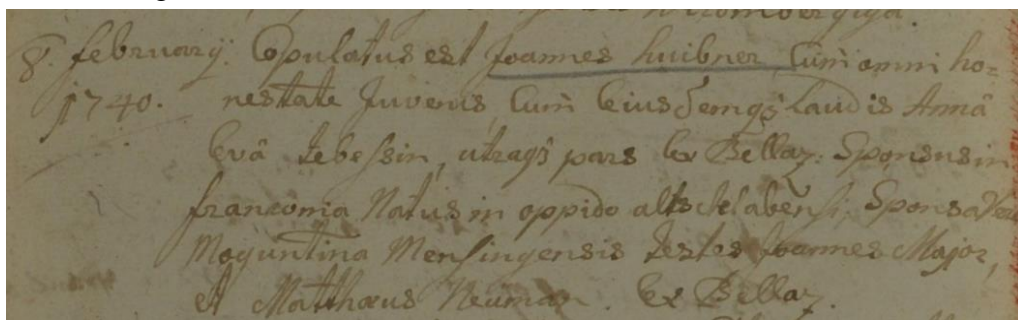 8. februarÿ. Copulatus est Joannes huibner Cum omni ho=
1740. nestate Juvenis, Cum Eiusdemqs Laudis Annâ
Evâ tebessin, utraqs pars Ex Bellaz: Sponsus in
franconia Natus in oppido Sponsa
Moguntina Mensingensis testes Joannes Major,
et Matthæus Neuman. Ex Bellaz.